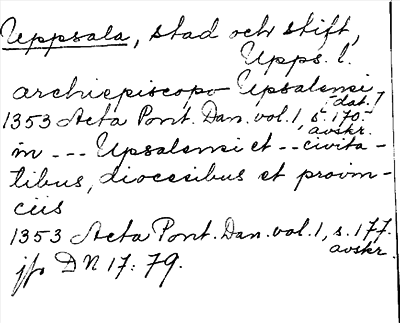 Uppsala, stad och stift,
Upps. l.
archiepiscopo Upsalensi
-dat.-
1353 Acta Pont. Dan. vol. 1, s. 170.
avskr.
in --- Upsalensi et -- civita-
tibus, diocesibus et provin-
ciis
1353 Acta Pont. Dan. vol. 1, s. 177.
avskr.
jfr DN 17: 79.